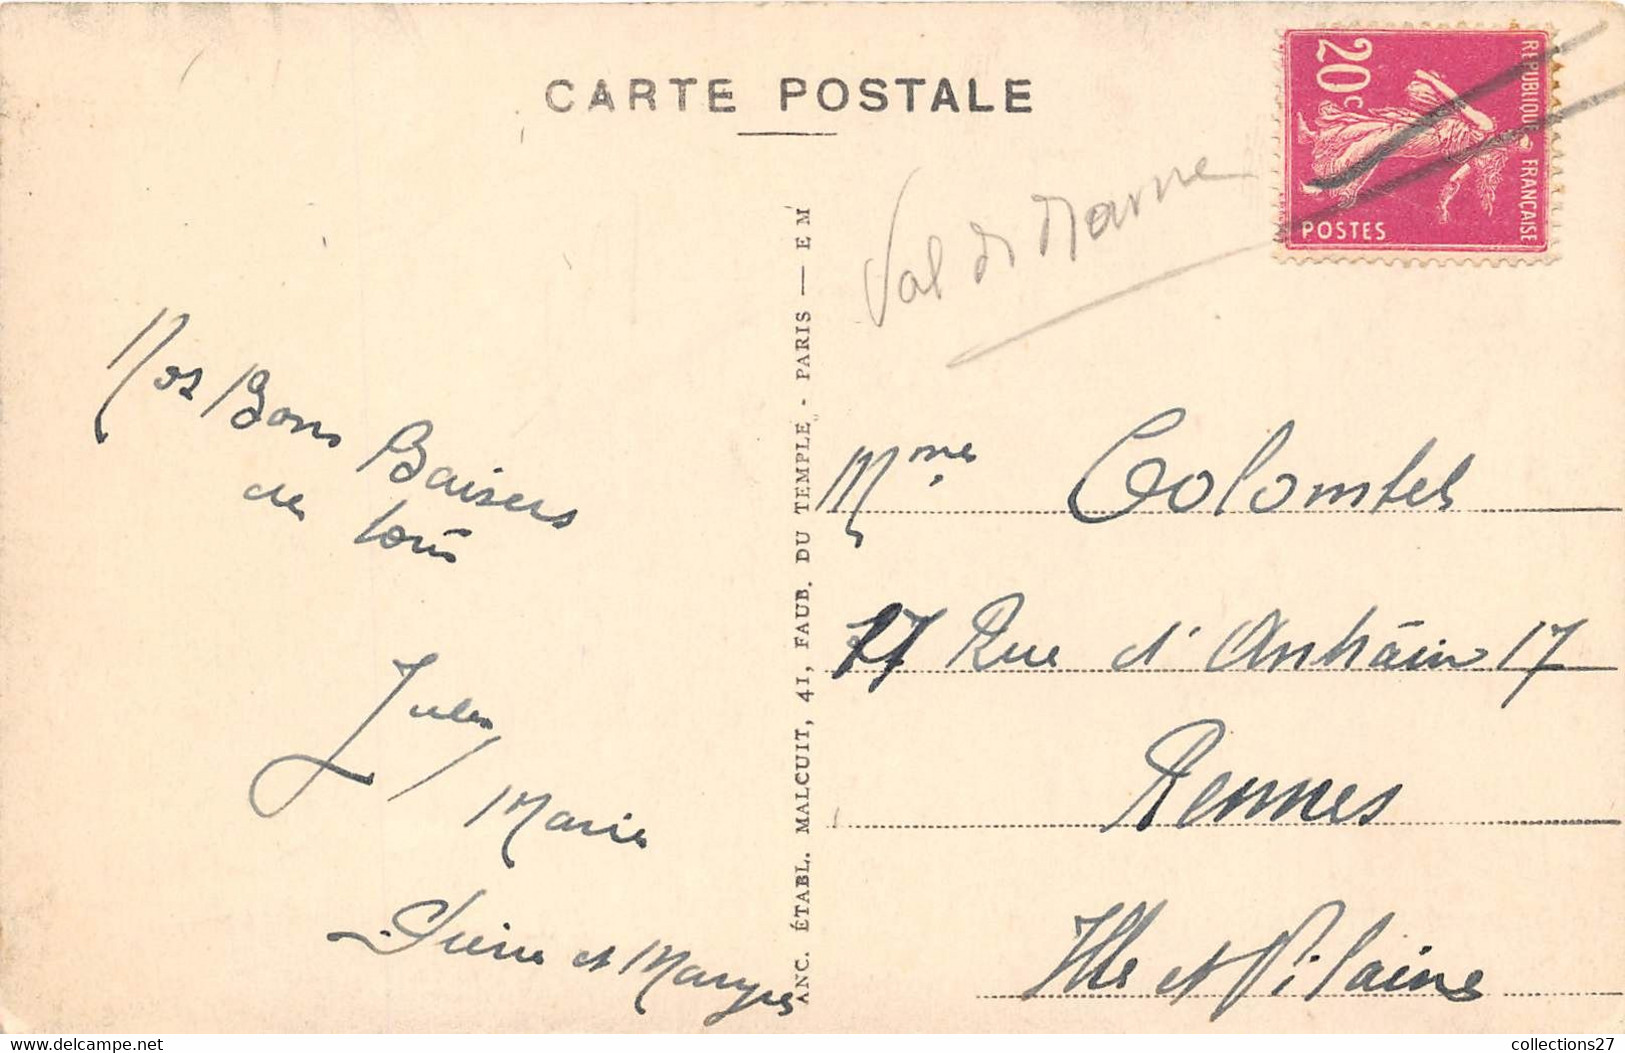 CARTE POSTALE
20c
REPUBLIQUE FRANÇAISE
POSTES
Val de Marne
Nos Bons Baisers
de tous
Jules
Marie
Pierre et Maryse
ANC. ÉTABL. MALCUIT, 41, FAUB. DU TEMPLE, - PARIS — E M
Mme Colombel
17 Rue d'Antrain 17
Rennes
Ille et Vilaine
www.delcampe.net
collections27